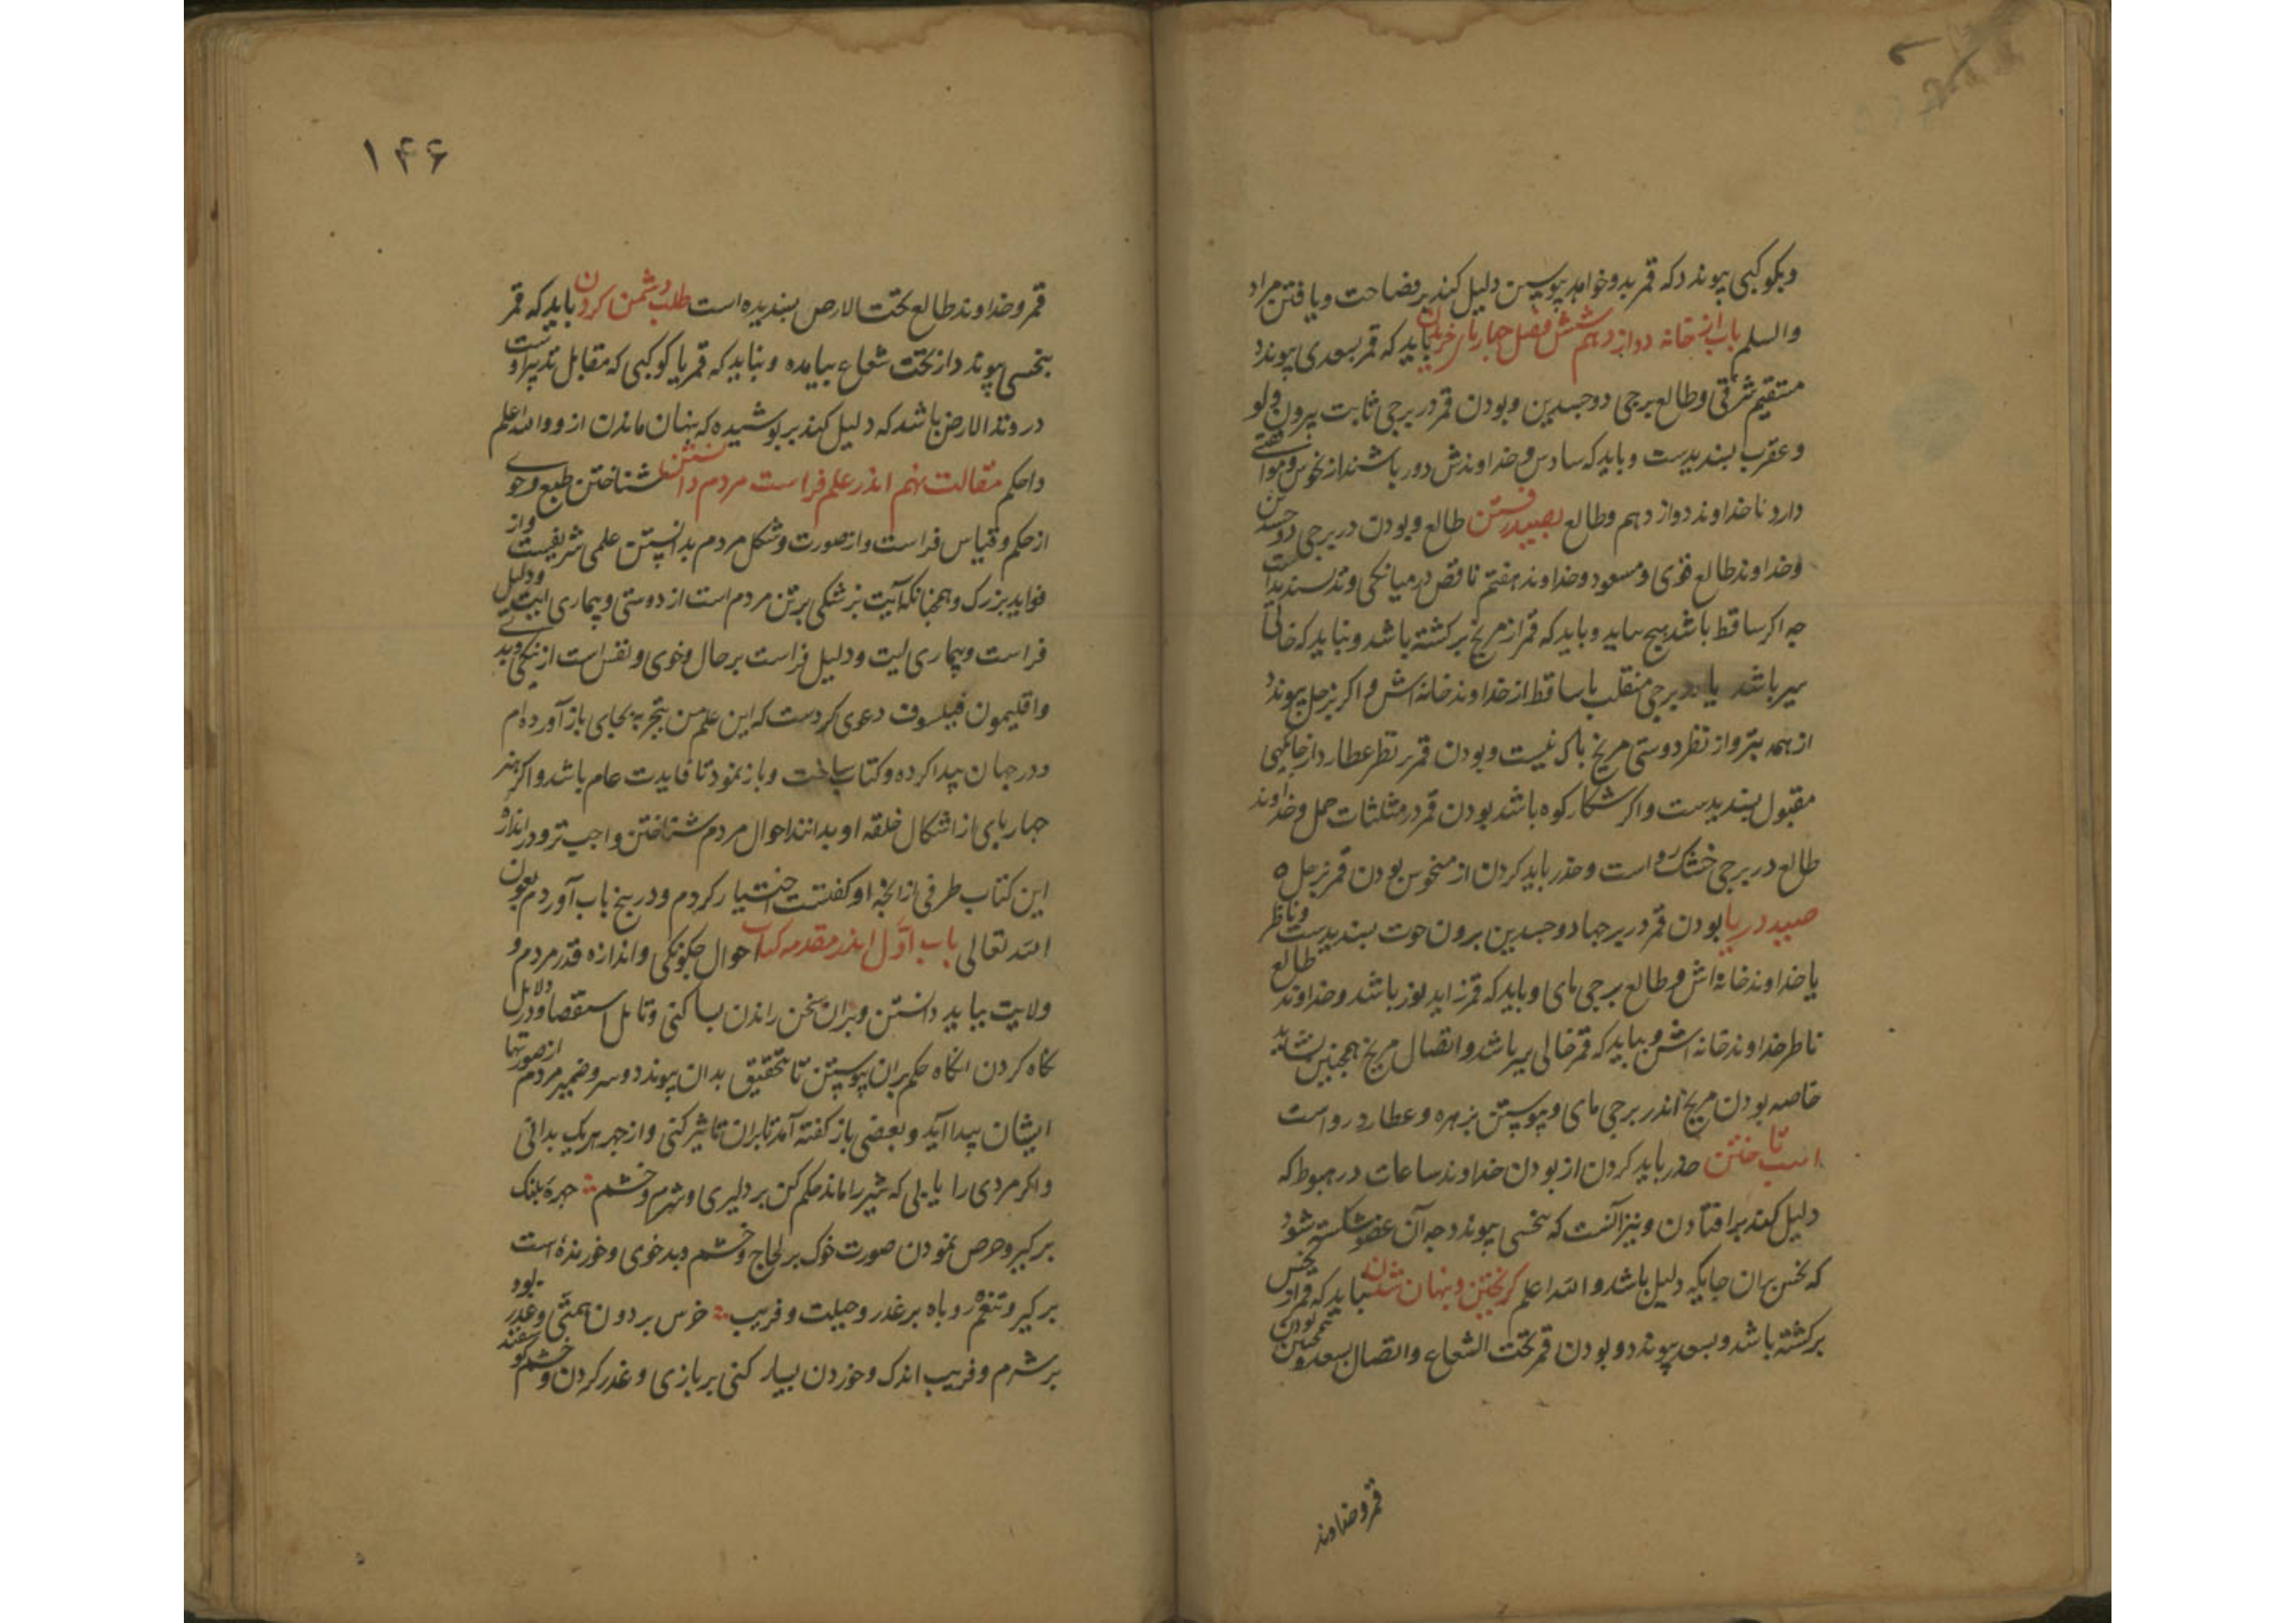 وبکوکبی پیوندد که قمر بدو خواهد پیوستن دلیل کند بر فصاحت و یافتن مراد
والسلم باب از خانه دوازدهم شش فصل چهارپای خریدن باید که قمر بسعدی پیوندد
مستقیم شرقی وطالع برجی دوجسدین وبودن قمر در برجی ثابت بیرون دلو
وعقرب پسندیدست وباید که سادس وخداوندش دور باشند از نحوس وموافقتی
دارد با خداوند دوازدهم وطالع بصید رفتن طالع وبودن در برجی دوجسدین
وخداوند طالع قوی ومسعود وخداوند هفتم ناقص در میانکی وتد پسندیداست
چه اکر ساقط باشد هیچ نیاید وباید که قمر از مریخ برکشته باشد ونباید که خالی
سیر باشد یا در برجی منقلب یا ساقط از خداوند خانه اش واکر بزحل پیوندد
از همه بتر واز نظر دوستی مریخ باک نیست وبودن قمر بر نظر عطارد از جایکهی
مقبول پسندیدست واکر شکار کوه باشد بودن قمر در مثلثات حمل وخداوند
طالع در برجی خشک رواست وحذر باید کردن از منحوس بودن قمر بزحل ه
صید دریا بودن قمر در برجها دوجسدین برون حوت پسندیدست وناظر
یا خداوند خانه اش وطالع برجی مای وباید که قمر زاید نور باشد وخداوند طالع
ناظر خداوند خانه اش ونباید که قمر خالی سیر باشد واتصال مریخ همچنین نشاید
خاصه بودن مریخ اندر برجی مای وپیوستن بزهره وعطارد رواست
اسب تاختن حذر باید کردن از بودن خداوند ساعات در هبوط که
دلیل کند بر افتادن ونیز آنست که بنحسی پیوندد چه آن عضو شکسته شود
که نحس بران جایکه دلیل باشد والله اعلم کریختن وپنهان شدن نباید که قمر از نحس
برکشته باشد وبسعد پیوندد وبودن قمر تحت الشعاع واتصال بسعد وهمچنین بودن
قمر وخداوند
۱۴۶
قمر وخداوند طالع تحت الارض پسندیده است طلب دشمن کردن باید که قمر
بنحسی پیوندد از تحت شعاع بیامده ونباید که قمر یا کوکبی که مقابل تدبیر اوست
در وتد الارض باشد که دلیل کند بر پوشیده که پنهان ماندن ازو والله اعلم
واحکم مقالت نهم اندر علم فراست مردم دانستن شناختن طبع وخوی
از حکم وقیاس فراست واز صورت وشکل مردم بدانستن علمی شریفست واز
فواید بزرک وهمچنانکه آیت بزشکی برتن مردم است از درستی وبیماری آیت ودلیل
فراست وبیماری آیت ودلیل فراست بر حال وخوی ونفس است از نیکی وبدی
واقلیمون فیلسوف دعوی کردست که این علم من بتجربه بجای باز آورده ام
ودر جهان پیدا کرده وکتاب ساخت وباز نمود تا فایدت عام باشد واکر هنر
چهارپای از اشکال خلقه او بدانند احوال مردم شناختن واجب تر ودر اندازه
این کتاب طرفی از آنچه او کفتست اختیار کردم ودر پنج باب آوردم بعون
الله تعالی باب اوّل اندر مقدمه کتاب احوال چکونکی واندازه قدر مردم و
ولایت بباید دانستن وبران سخن راندن بسا کنی وتامل استقصا ودر دلایل
نکاه کردن آنکاه حکم بران پیوستن تا تحقیق بدان پیوندد وسر وضمیر مردم از صورتها
ایشان پیدا آید وبعضی باز کفته آمد تا بران تاثیر کنی واز چهر هریک بدانی
واکر مردی را یابی که شیر را ماند حکم کن بر دلیری وشرم وخشم چهره پلنک
بر کبر وحرص نمودن صورت خوک بر لجاج وخشم وبدخوی وخورنده است
بر کبر وتنعم روباه بر غدر وحیلت وفریب خرس بر دون همتی وغدر بود
بر شرم وفریب اندک وخوردن بسیار کنی بر بازی وغدر کردن وخشم کوسفند